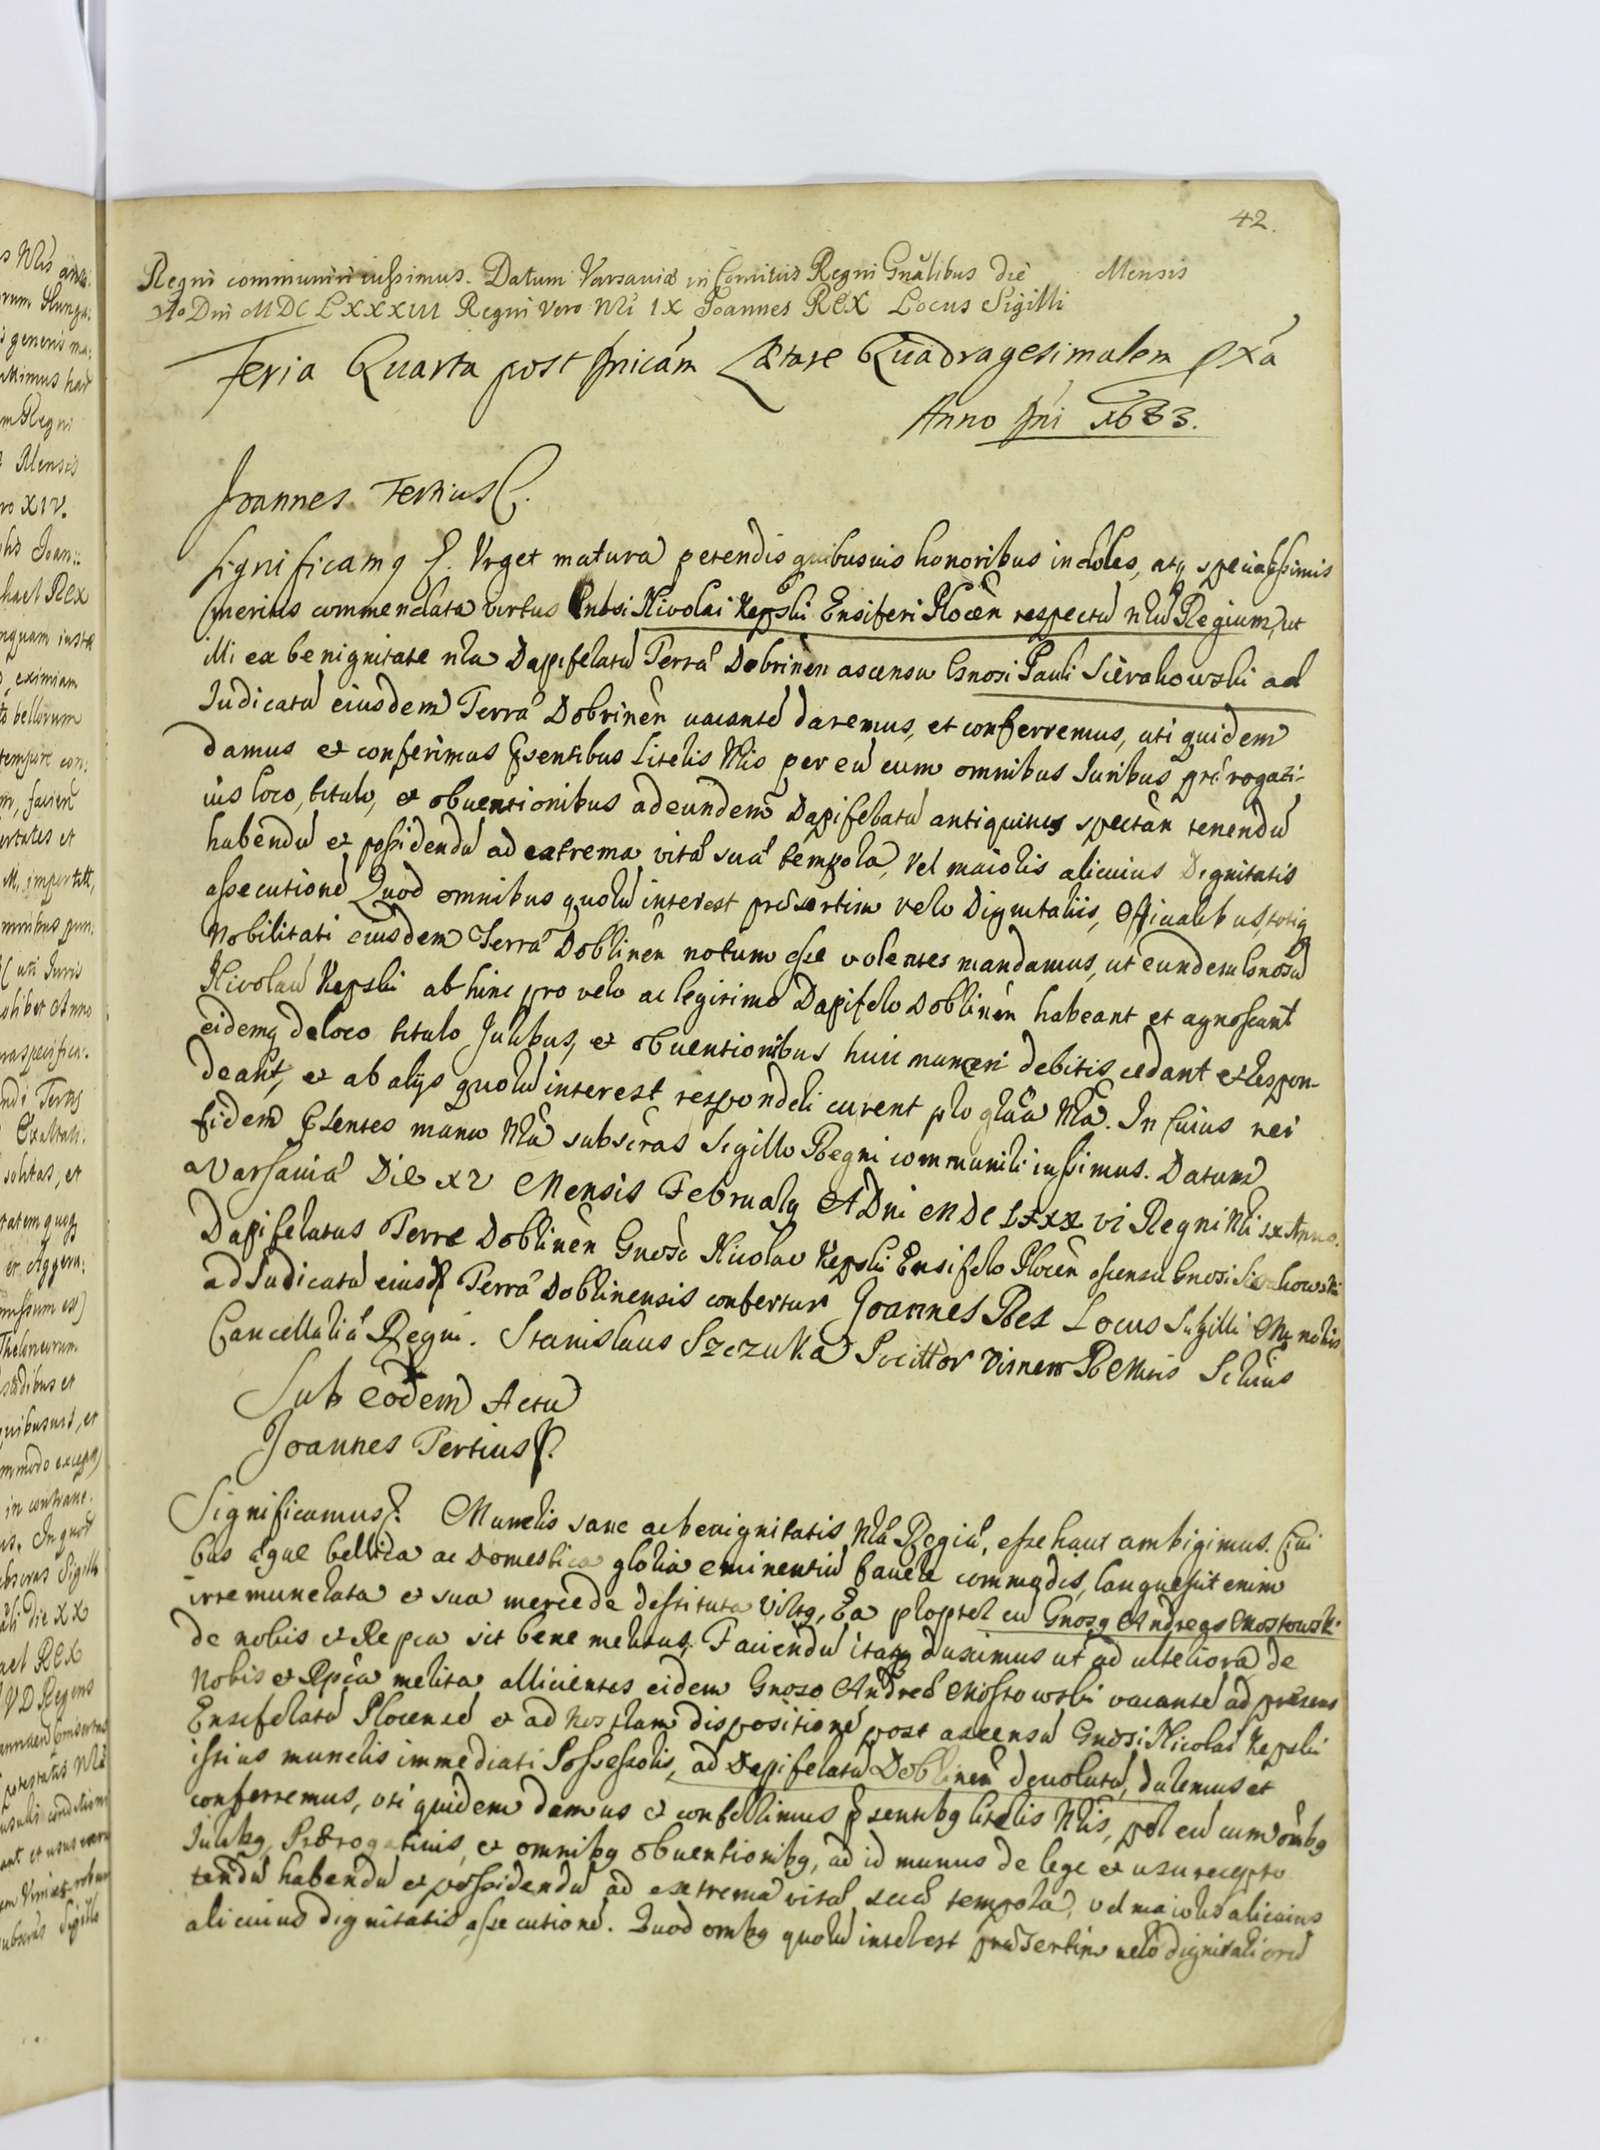 42.
Regni communiri iussimus. Datum Varsaviæ in Comitiis Regni Gnalibus die Mensis
Ao Dni MDCLXXXIII Regni Vero Nri IX Joannes REX Locus Sigilli
Feria Quarta post Dnicam Lætare Quadragesimalem pxa
Anno Dni 1683.
Joannes Tertius
significamq Urget matura petendis quibusuis honoribus indoles, atq speciatissimis
meritis commendata virtus Gnosi Nicolai Kepski Ensiferi Plocen respectu nru Regium, ut
illi ex benignitate nra Dapiferatu Terræ Dobrinen ascensu Gnosi Pauli Sierakowski ad
Iudicatu eiusdem Terræ Dobrinen vacante daremus, et conferremus, uti quidem
damus et conferimus Psentibus Literis Nris per eu cum omnibus Iuribus prærogati-
uis loco, titulo, et obuentionibus ad eundem Dapiferatu antiquitus spectan tenendu
habendu et possidendu ad extrema vitæ suæ tempora, vel maioris alicuius Dignitatis
assecutione Quod omnibus quoru interest præsertim vero Dignitariis, Officialibus, totiq
Nobilitati eiusdem Terræ Dobrinen notum esse volentes mandamus, ut eundem Gnosu
Nicolau Kepski abhinc pro vero ac legitimo Dapifero Dobrinen habeant et agnoscant
eidemq de loco titulo Iuribus, et obuentionibus huic muneri debitis cedant et respon-
deant, et ab alijs quoru interest responderi curent pro græa Nra. In Cuius rei
fidem Psentes manu Nra subscras Sigillo Regni communiri iussimus. Datum
Varsaviæ Die XV Mensis Februarij A Dni MDCLXXX VI Regni Nri IX Anno.
Dapiferatus Terræ Dobrinen Gnoso Nicolao Kepski Ensifero Plocen ascensu Gnosi Sierakowski
ad Iudicatu eiusd Terræ Dobrinensis confertur Joannes Rex Locus Sigilli
Cancellariæ Regni. Stanislaus Szczuka
Sub eodem Actu
Joannes Tertius
Significamus Muneris sane ac benignitatis Nræ Regiæ, esse haut ambigimus. Ciui
bus æque bellica ac Domestica gloria eminentiu fauere commodis, languescit enim
irremunerata et sua mercede destituta virtq, Ea propter cu Gnosq Andreas Mostowski
de nobis et Repca sit bene meritus, Faciendu itaq duximus ut ad ulteriora de
Nobis et Rpca merita allicientes eidem Gnoso Andreæ Mostowski vacante ad præsens
Ensiferatu Plocense et ad Nostram dispositione post ascensu Gnosi Nicolai Kepski
istius muneris immediati Possessoris, ad Dapiferatu Dobrinen deuolutu, daremus et
conferremus, uti quidem damus et conferimus Psentibq literis Nris, per eu cum ombq
Iuribq, Prærogatiuis, et omnibq obuentionibq, ad id munus de lege et usu recepto
tendu habendu et possidendu ad extrema vitæ suæ tempora, vel maioris alicuius
alicuius dignitatis assecutione. Quod ombq quoru interest præsertim vero dignitarioru